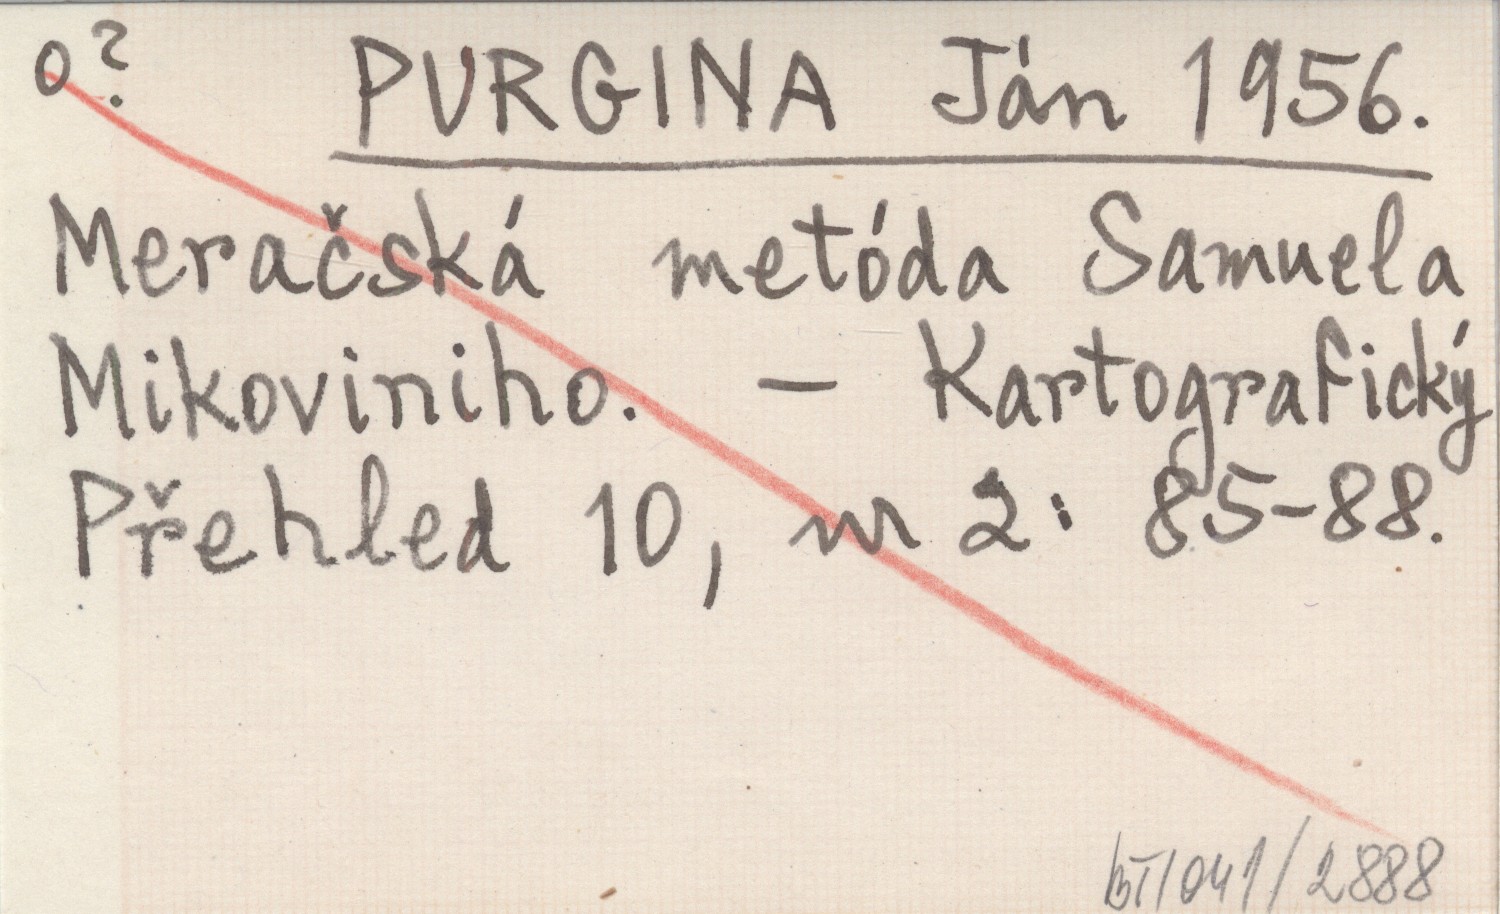 o? PURGINA Ján 1956.
Meračská metóda Samuela
Mikoviniho. – Kartografický
Přehled 10, nr 2: 85-88.
BT/041/2888